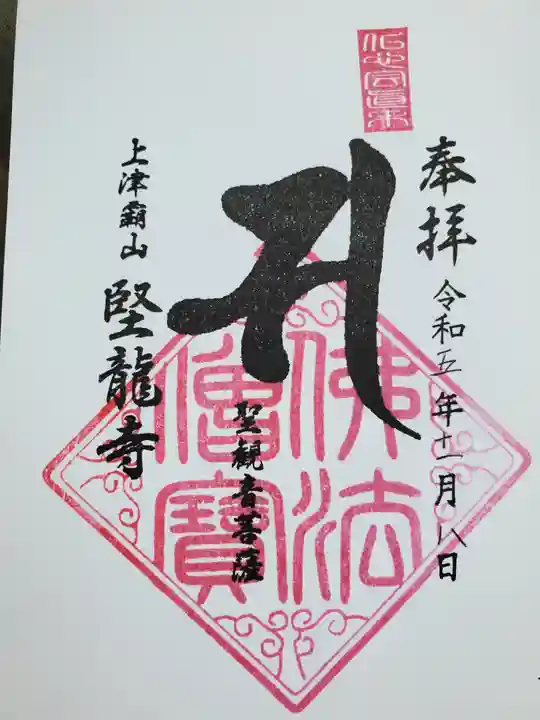 奉拝
令和五年十一月八日
佛法
僧寶
聖観音菩薩
上津覇山
堅龍寺